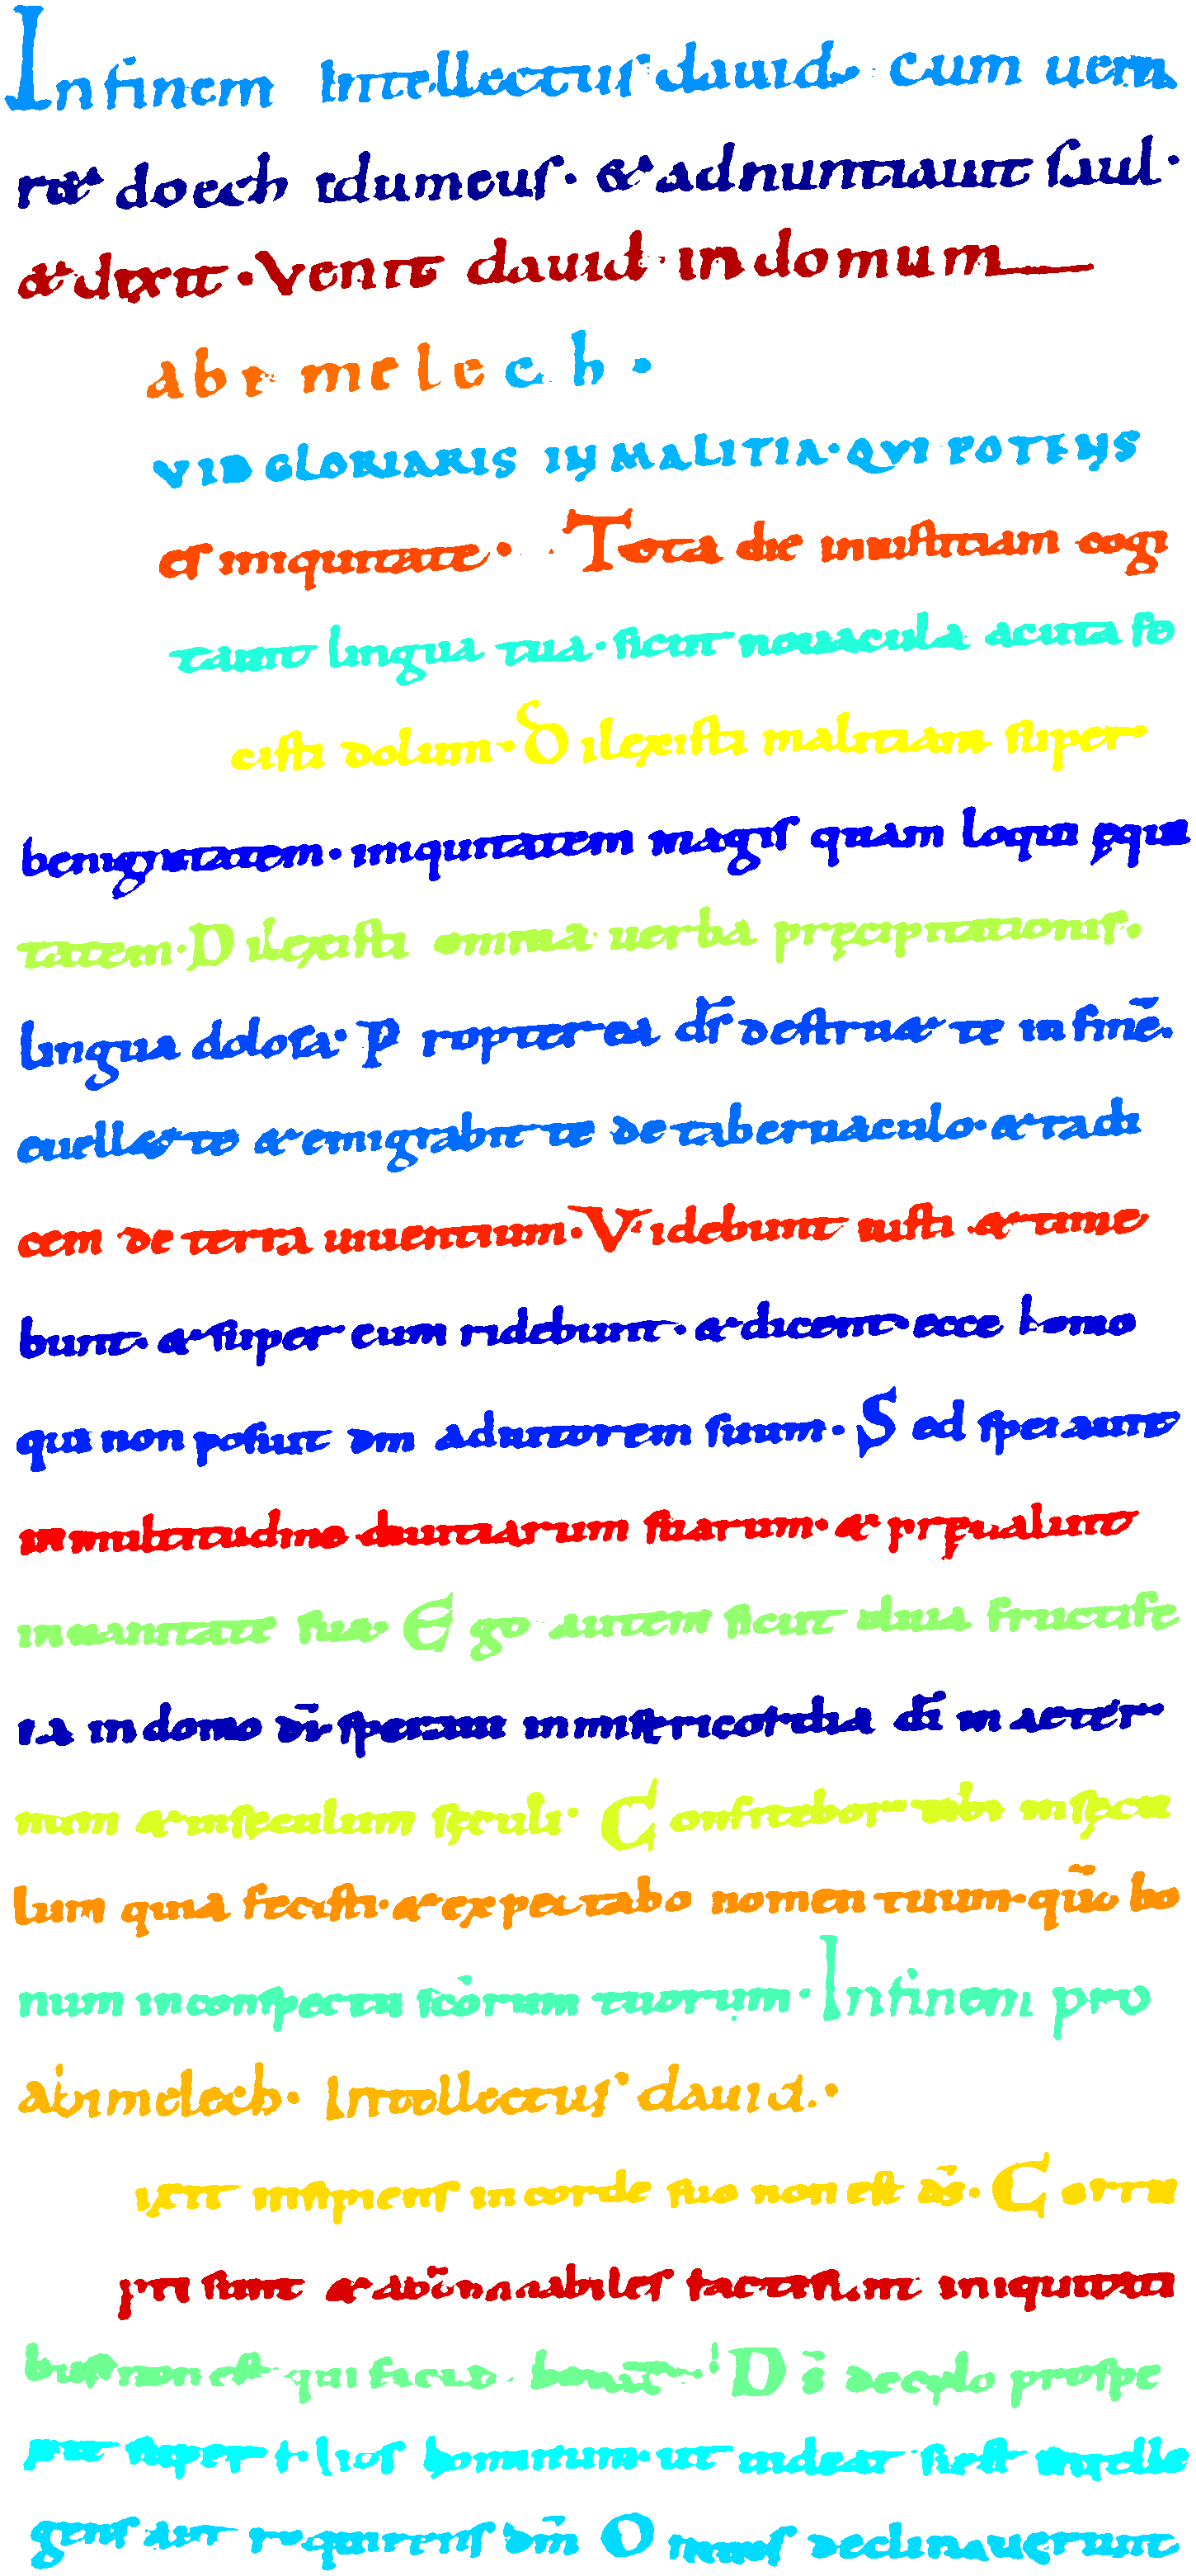 In finem Intellectus dauid cum ueni
ret doech idumeus · & adnuntiauit saul ·
& dixit · Venit dauid in domum
abimelech ·
VID GLORIARIS IN MALITIA · QVI POTENS
es iniquitate · Tota die iniustitiam cogi
tauit lingua tua · sicut nouacula acuta fe
cisti dolum · Dilexisti malitiam super
benignitatem · iniquitatem magis quam loqui ęqui
tatem · Dilexisti omnia uerba pręcipitationis ·
lingua dolosa · Propter ea ds̄ destru& te in finē ·
euell& te & emigrabit te de tabernaculo · & radi
cem de terra uiuentium · Videbunt iusti & time
bunt · & super eum ridebunt · & dicent · ecce homo
qui non posuit dm adiutorem suum · Sed sperauit
in multitudine diuitiarum suarum · & pręualuit
in uanitate sua · Ego autem sicut oliua fructife
ra in domo dī speraui in misericordia dī in aeter
num & in sęculum sęculi · Confitebor tibi in sęcu
lum quia fecisti · & expectabo nomen tuum · qūo bo
num in conspectu scōrum tuorum · In finem pro
abimelech · Intellectus dauid ·
ixit insipiens in corde suo non est ds̄ · Corru
pti sunt & abōminabiles facti sunt in iniquitati
bus non est qui faciat bonū · Ds̄ de cęlo prospe
xit super filios hominum · ut uideat si est intelle
gens aut requirens dm̄ Omnes declinauerunt